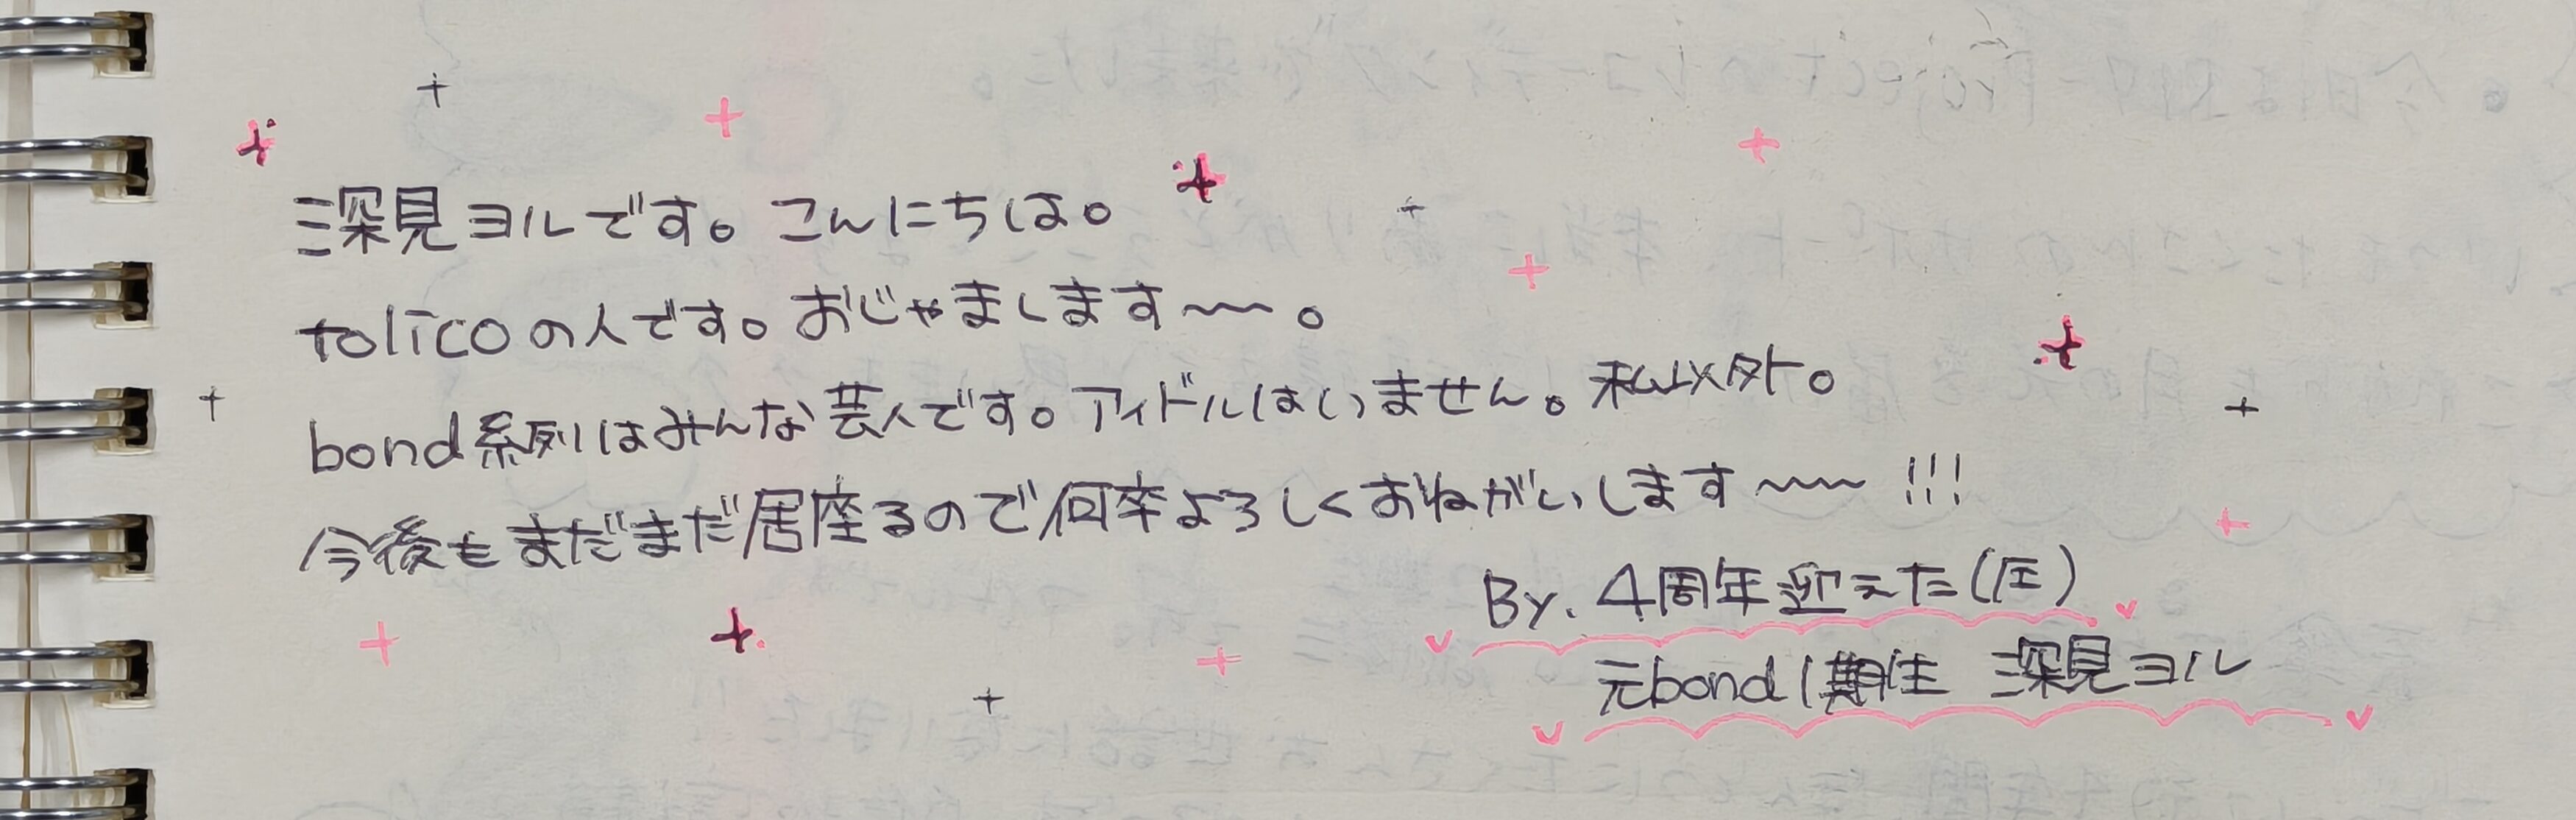 深見ヨルです。こんにちは。
tolicoの人です。おじゃまします〜〜。
bond系列はみんな芸人です。アイドルはいません。私以外。
今後もまだまだ居座るので何卒よろしくおねがいします〜〜!!!
By. 4周年迎えた(圧)
元bond1期生 深見ヨル